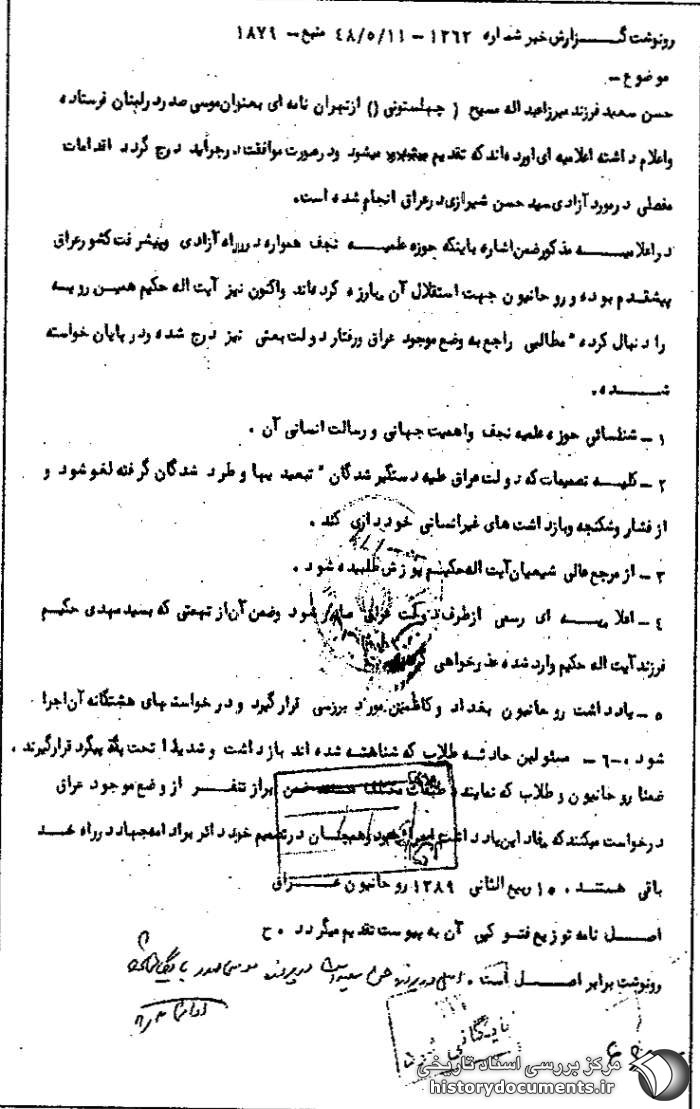 رونوشت گـــزارش خبر شماره ۱۲۶۲ – ۴۸/۵/۱۱ منبع – ۱۸۷۹
موضوع –
حسن سعید فرزند میرزا عبداله مسیح ( چهلستونی () از تهران نامه ای بعنوان موسی صدر در لبنان فرستاده
و اعلام داشته اعلامیه ای آورده اند که تقدیم میشود و در صورت موافقت در جراید درج گردد اقدامات
مفصلی در مورد آزادی سید حسن شیرازی در عراق انجام شده است.
در اعلامیـــه مذکور ضمن اشاره باینکه حوزه علمیـــه نجف همواره در راه آزادی و پیشرفت کشور عراق
پیشقدم بوده و روحانیون جهت استقلال آن مبارزه کرده اند و اکنون نیز آیت اله حکیم همین رویـــه
را دنبال کرده " مطالبی راجع به وضع موجود عراق و رفتار دولت بعثی نیز درج شده و در پایان خواسته
شـــده.
۱ – شناسائی حوزه علمیه نجف و اهمیت جهانی و رسالت انسانی آن .
۲ – کلیـــه تصمیمات که دولت عراق علیه دستگیر شدگان " تبعید یها و طرد شدگان گرفته لغو شود و
از فشار و شکنجه و بازداشت های غیر انسانی خودداری کند .
۳ – از مرجع عالی شیعیان آیت اله حکیم پوزش طلبیده شود .
۴ – اعلامیـــه ای رسمی از طرف دولت عراق صادر شود و ضمن آن از تهمتی که بسید مهدی حکیم
فرزند آیت اله حکیم وارد شده عذرخواهی
۵ – یادداشت روحانیون بغداد و کاظمین مورد بررسی قرار گیرد و درخواستهای هشتگانه آن اجرا
شود .–۶ – مسئولین حادثه طلاب که شناخته شده اند بازداشت و شدیدا تحت پیگرد قرار گیرند .
ضمنا روحانیون و طلاب که نماینده طبقات مختلف هستند ضمن ابراز تنفـــر از وضع موجود عراق
درخواست میکنند که مفاد این یادداشت اجرا شود و همچنان در تصمیم خود دائر بر ادامه جهاد در راه خـــدا
باقی هستند . ۱۵ ربیع الثانی ۱۳۸۹ روحانیون عـــراق
اصـــل نامه توزیع فتوکپی آن به پیوست تقدیم میگردد . ح
رونوشت برابر اصـــل است . اصل در پرونده حسن سعید است در پرونده موسی صدر بایگانی
بایگانی شود
مرکز بررسی اسناد تاریخی
historydocuments.ir